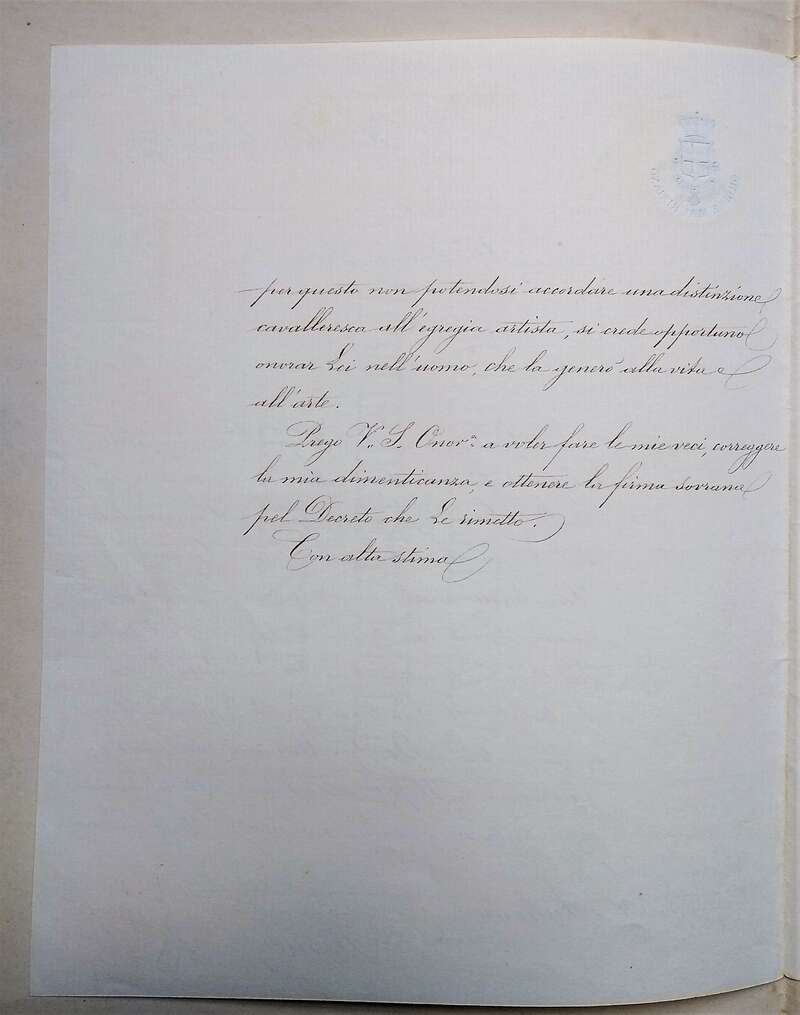 per questo non potendosi accordare una distinzione
cavalleresca all'egregia artista, si crede opportuno
onorar Lei nell'uomo, che la generò alla vita e
all'arte.
Prego V. S. Onov.ª a voler fare le mie veci, correggere
la mia dimenticanza, e ottenere la firma sovrana
pel Decreto che Le rimetto.
Con alta stima